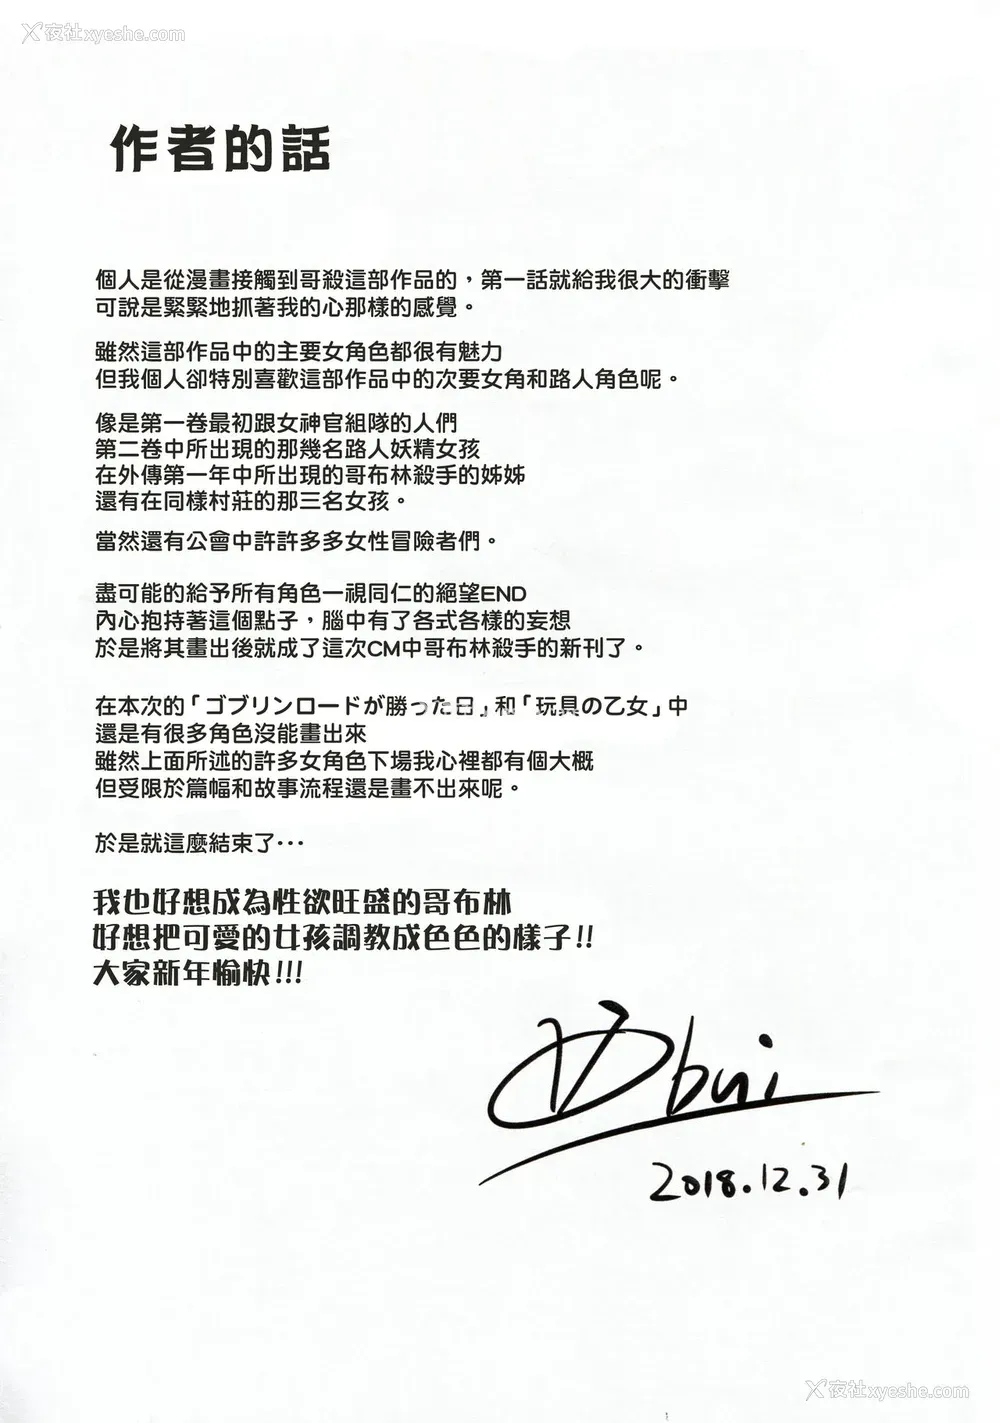 夜社xyeshe.com
作者的話
個人是從漫畫接觸到哥殺這部作品的，第一話就給我很大的衝擊
可說是緊緊地抓著我的心那樣的感覺。
雖然這部作品中的主要女角色都很有魅力
但我個人卻特別喜歡這部作品中的次要女角和路人角色呢。
像是第一卷最初跟女神官組隊的人們
第二卷中所出現的那幾名路人妖精女孩
在外傳第一年中所出現的哥布林殺手的姊姊
還有在同樣村莊的那三名女孩。
當然還有公會中許許多多女性冒險者們。
盡可能的給予所有角色一視同仁的絕望END
內心抱持著這個點子，腦中有了各式各樣的妄想
於是將其畫出後就成了這次CM中哥布林殺手的新刊了。
在本次的「ゴブリンロードが勝った日」和「玩具の乙女」中
還是有很多角色沒能畫出來
雖然上面所述的許多女角色下場我心裡都有個大概
但受限於篇幅和故事流程還是畫不出來呢。
於是就這麼結束了···
我也好想成為性欲旺盛的哥布林
好想把可愛的女孩調教成色色的樣子!!
大家新年愉快!!!
2018.12.31
夜社xyeshe.com